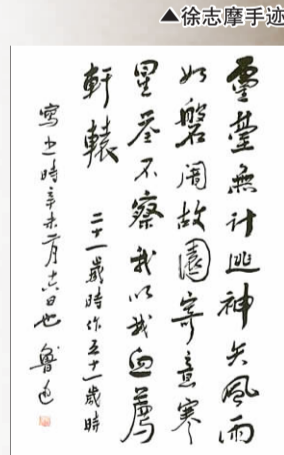 ▲徐志摩手迹
靈臺無計逃神矢風雨
如磐闇故園寄意寒
星荃不察我以我血薦
軒轅 二十一歲時作五十一歲時
寫之時辛未二月十六日也 魯迅